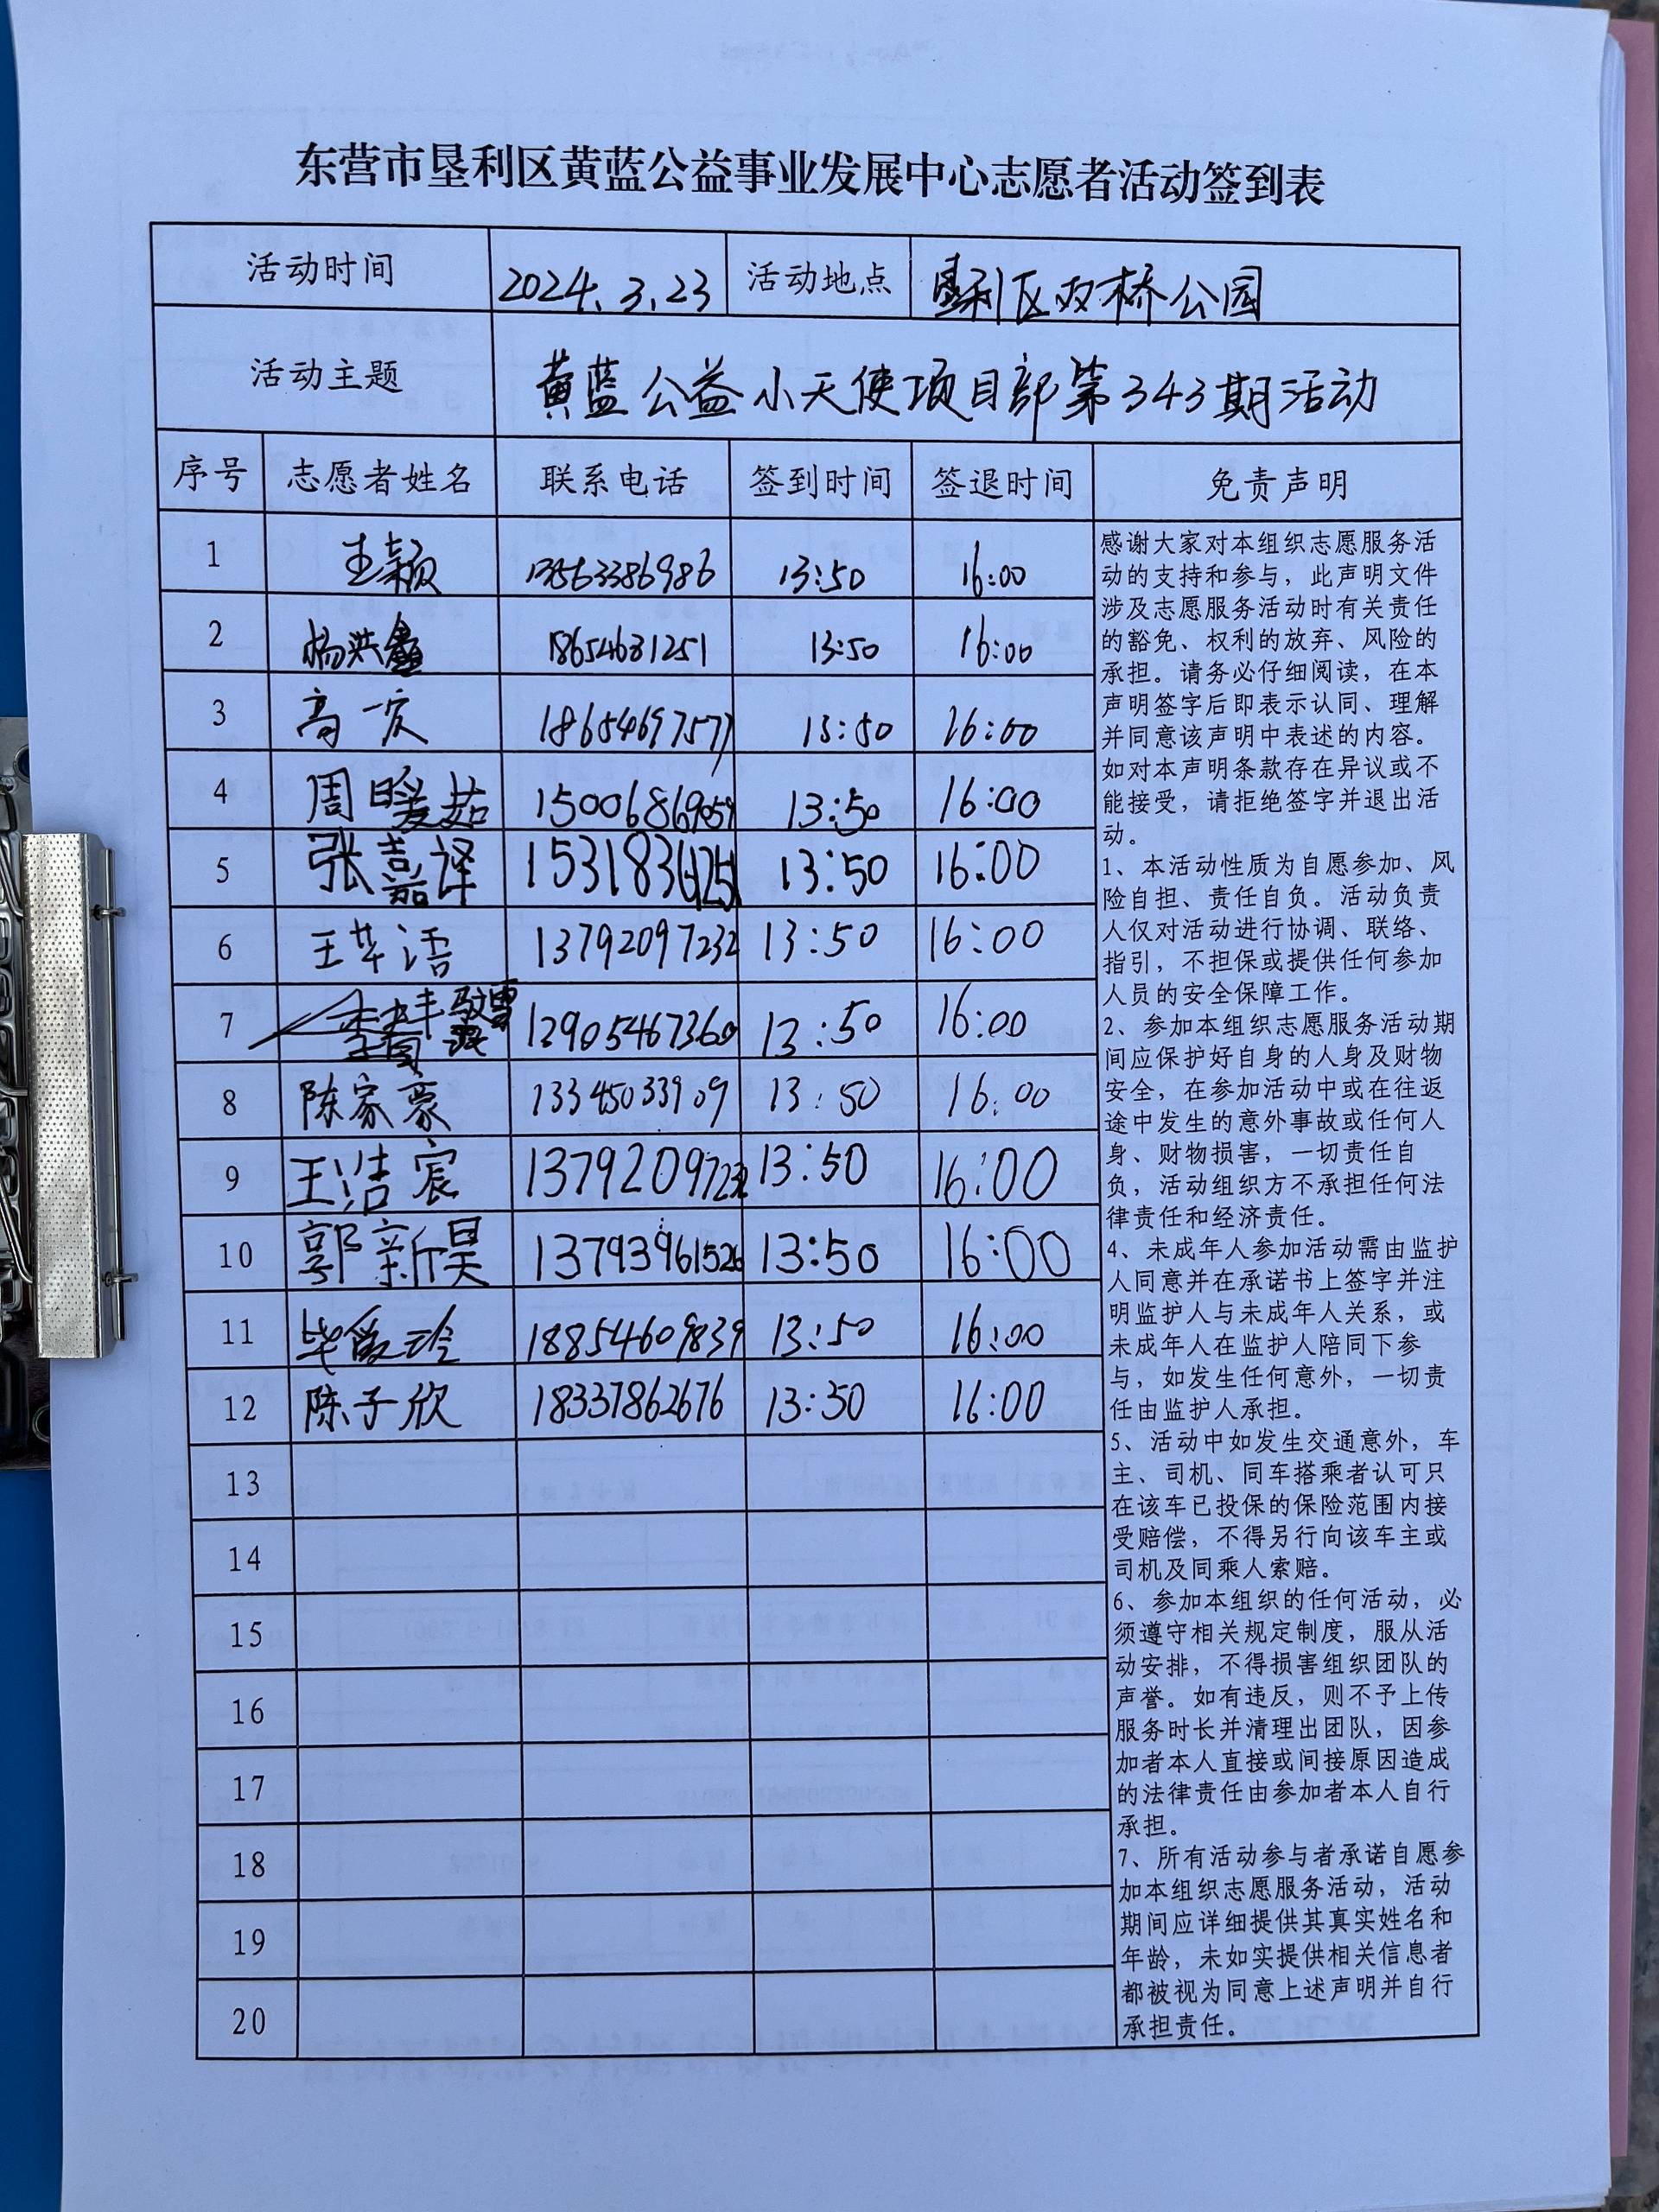 东营市垦利区黄蓝公益事业发展中心志愿者活动签到表
活动时间 2024.3.23 活动地点 垦利区双桥公园
活动主题 黄蓝公益小天使项目部第343期活动
序号 志愿者姓名 联系电话 签到时间 签退时间 免责声明
1 王颖 13563386986 13:50 16:00
2 杨洪鑫 18654631251 13:50 16:00
3 高一 18654697577 13:50 16:00
4 周暖茹 15006869059 13:50 16:00
5 张嘉译 13:50 16:00
6 王芊语 13792097232 13:50 16:00
7 12905467360 13:50 16:00
8 陈家豪 13345033909 13:50 16:00
9 王浩宸 13792097232 13:50 16:00
10 郭新昊 13793961526 13:50 16:00
11 毕爱玲 18854609839 13:50 16:00
12 陈子欣 18337862676 13:50 16:00
13
14
15
16
17
18
19
20
感谢大家对本组织志愿服务活
动的支持和参与，此声明文件
涉及志愿服务活动时有关责任
的豁免、权利的放弃、风险的
承担。请务必仔细阅读，在本
声明签字后即表示认同、理解
并同意该声明中表述的内容。
如对本声明条款存在异议或不
能接受，请拒绝签字并退出活
动。
1、本活动性质为自愿参加、风
险自担、责任自负。活动负责
人仅对活动进行协调、联络、
指引，不担保或提供任何参加
人员的安全保障工作。
2、参加本组织志愿服务活动期
间应保护好自身的人身及财物
安全，在参加活动中或在往返
途中发生的意外事故或任何人
身、财物损害，一切责任自
负，活动组织方不承担任何法
律责任和经济责任。
4、未成年人参加活动需由监护
人同意并在承诺书上签字并注
明监护人与未成年人关系，或
未成年人在监护人陪同下参
与，如发生任何意外，一切责
任由监护人承担。
5、活动中如发生交通意外，车
主、司机、同车搭乘者认可只
在该车已投保的保险范围内接
受赔偿，不得另行向该车主或
司机及同乘人索赔。
6、参加本组织的任何活动，必
须遵守相关规定制度，服从活
动安排，不得损害组织团队的
声誉。如有违反，则不予上传
服务时长并清理出团队，因参
加者本人直接或间接原因造成
的法律责任由参加者本人自行
承担。
7、所有活动参与者承诺自愿参
加本组织志愿服务活动，活动
期间应详细提供其真实姓名和
年龄，未如实提供相关信息者
都被视为同意上述声明并自行
承担责任。